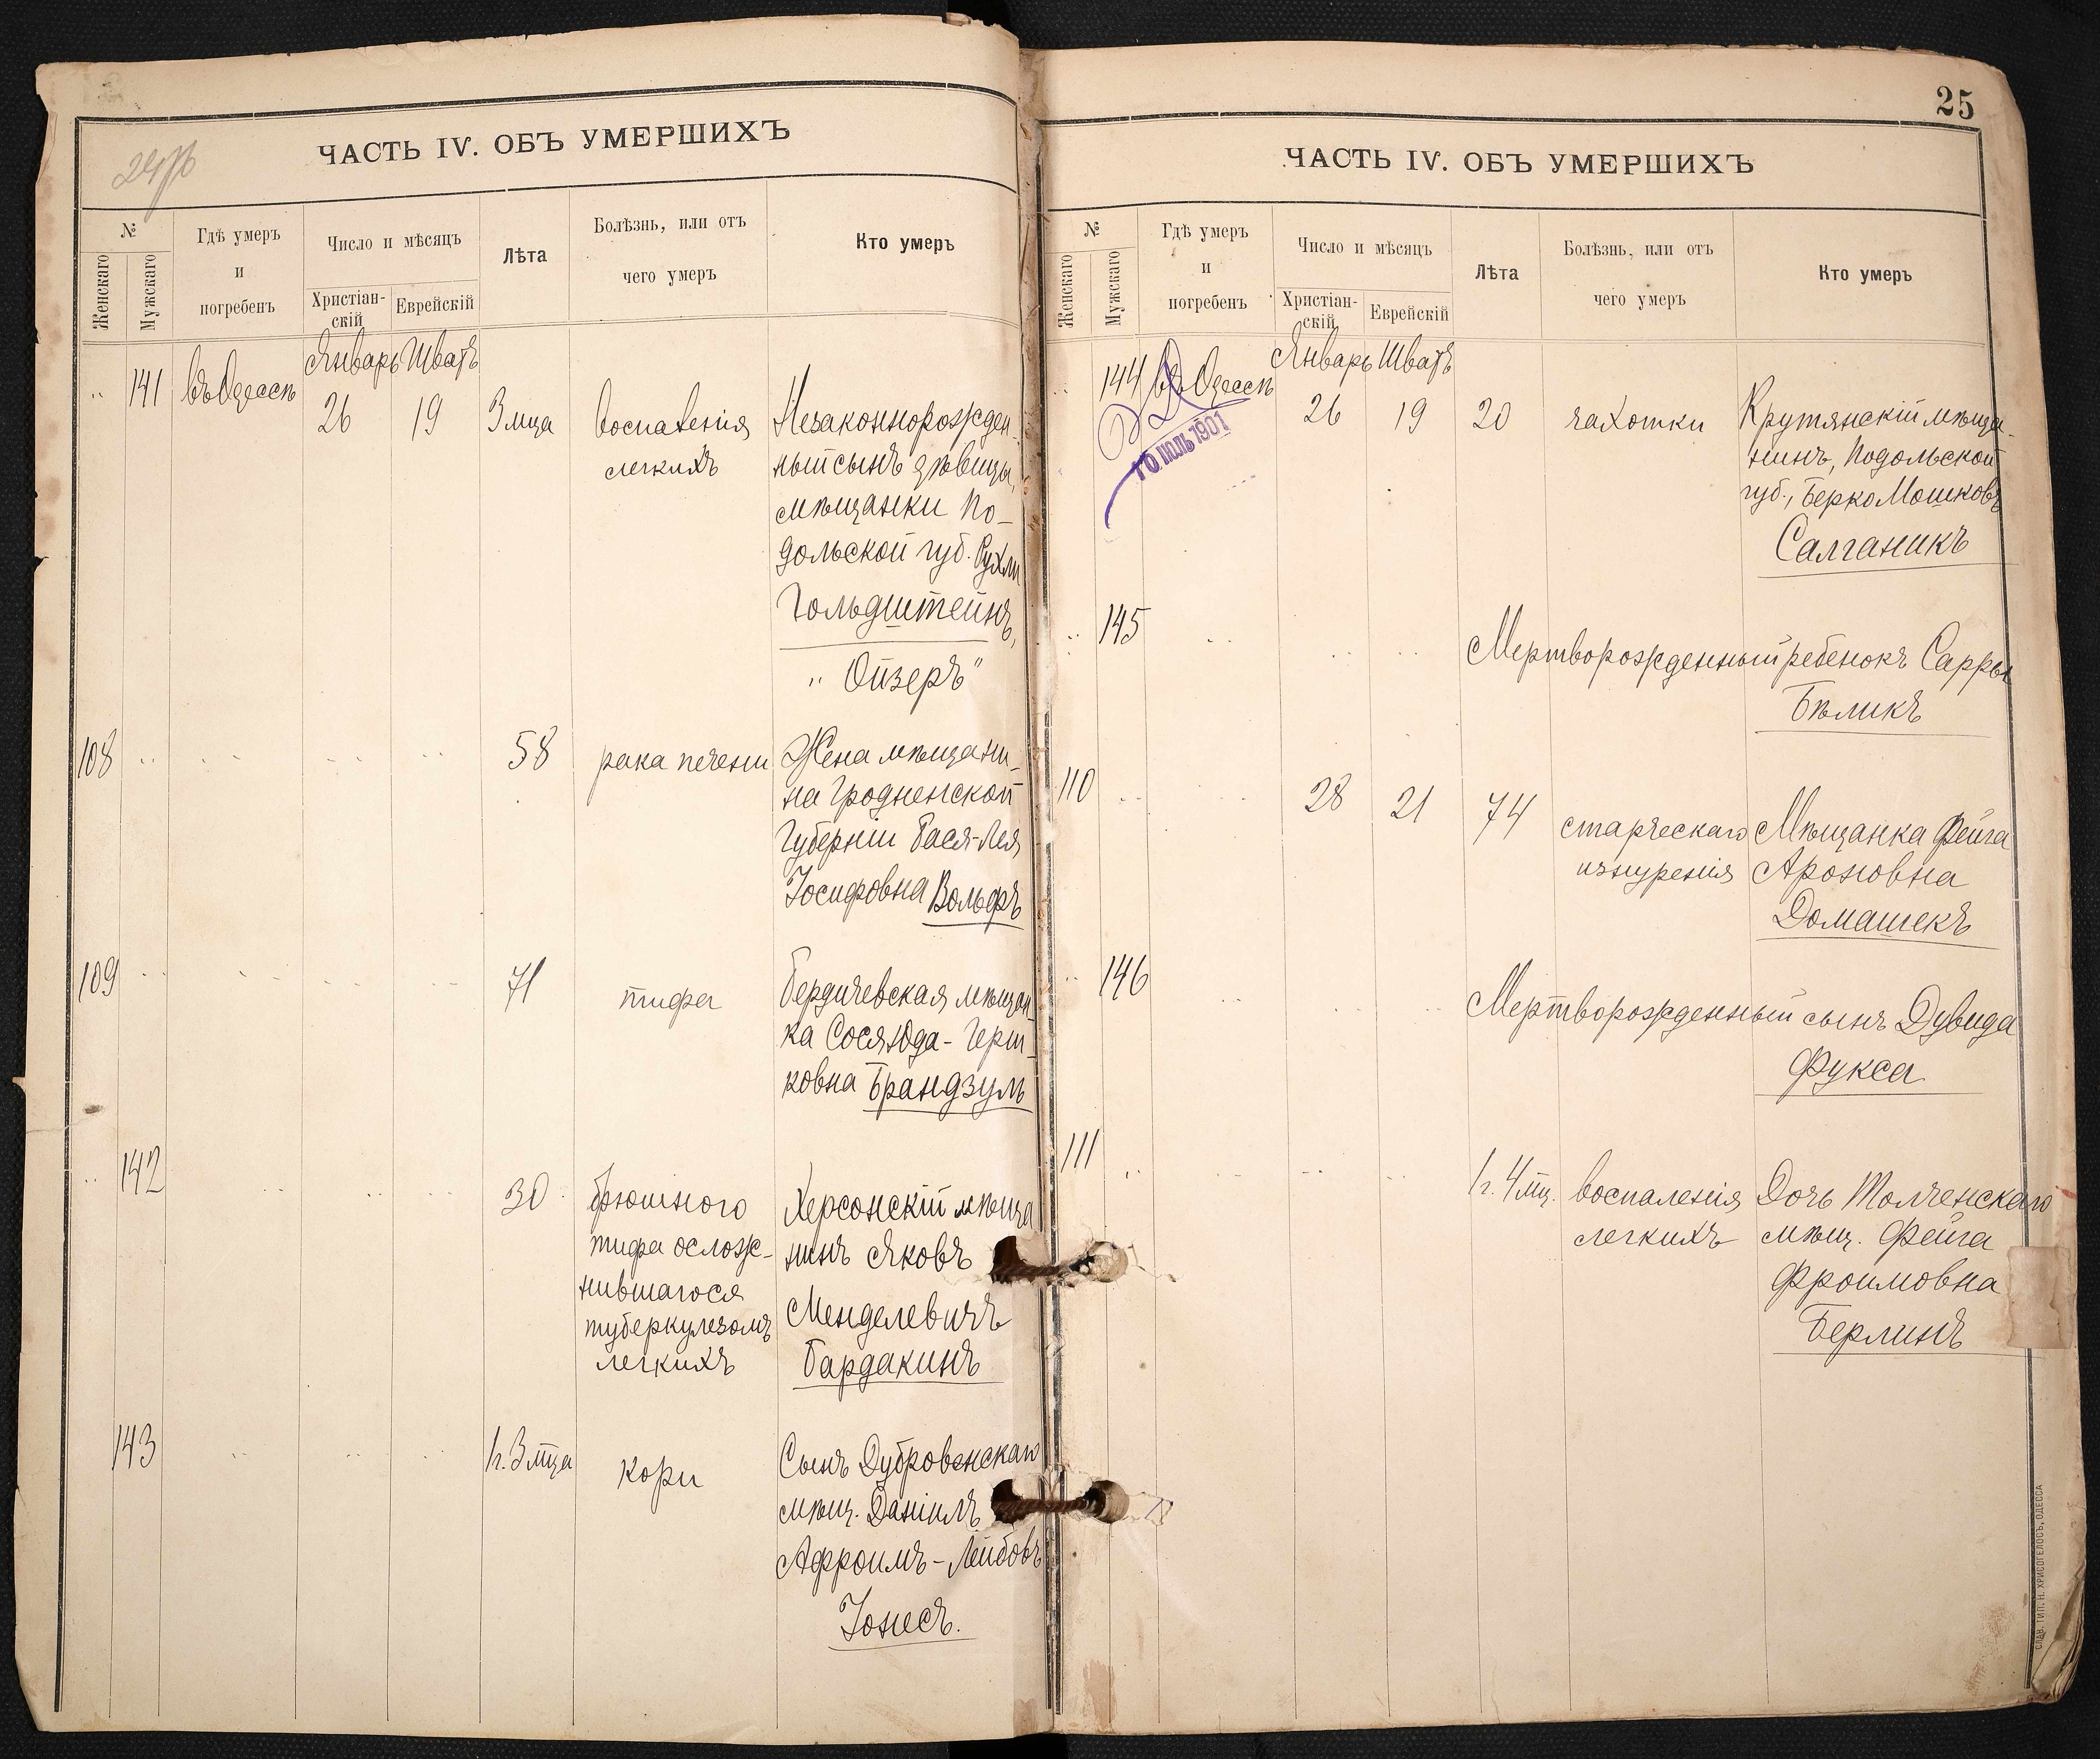 24об
ЧАСТЬ IV. ОБЪ УМЕРШИХЪ
№
Женскаго
Мужскаго
Гдѣ умеръ
и
погребенъ
Число и мѣсяцъ
Христіан-
скій
Еврейскій
Лѣта
Болѣзнь, или отъ
чего умеръ
Кто умеръ
Январь Шватъ
" 141 въ Одессѣ 26 19 3 мца воспаленія Незаконнорожден-
легкихъ ный сынъ дѣвицы,
мѣщанки По-
дольской губ. Рухли
Гольдштейнъ,
"Ойзеръ"
108 " " " " " 58 рака печени Жена мѣщани-
на Гродненской
Губерніи Бася-Лея
Іосифовна Вольфъ
109 " " " " " 71 тифа Бердичевская мѣщан-
ка Сося Юда-Герш-
ковна Брандзуль
" 142 " " " 30 брюшного Херсонскій мѣща
тифа ослож- нинъ Яковъ
нившагося
туберкулезомъ Менделевичъ
легкихъ Бардакинъ
143 " " " 1 г. 3 мца кори Сынъ Дубровенскаго
мѣщ. Даніилъ
Афроимъ-Лейбовъ
Іонесъ.
25
ЧАСТЬ IV. ОБЪ УМЕРШИХЪ
№
Женскаго
Мужскаго
Гдѣ умеръ
и
погребенъ
Число и мѣсяцъ
Христіан-
скій
Еврейскій
Лѣта
Болѣзнь, или отъ
чего умеръ
Кто умеръ
Январь Шватъ
" 144 въ Одессѣ 26 19 20 чахотки Крутянскій мѣща-
нинъ, Подольской
губ., Берко Мошковъ
Салганикъ
10 ІЮЛЬ 1901
" 145 " " " Мертворожденный ребенокъ Сарры
Бѣликъ
110 " " 28 21 74 старческаго Мѣщанка Фейга
изнуренія Ароновна
Домашекъ
" 146 " " " Мертворожденный сынъ Дувида
Фукса
111 " " " " 1 г. 4 мц. воспаленія Дочь Толченскаго
легкихъ мѣщ. Фейга
Фроимовна
Берлинъ
СЛАВ. ТИП. Н. ХРИСОГЕЛОСЪ, ОДЕССА